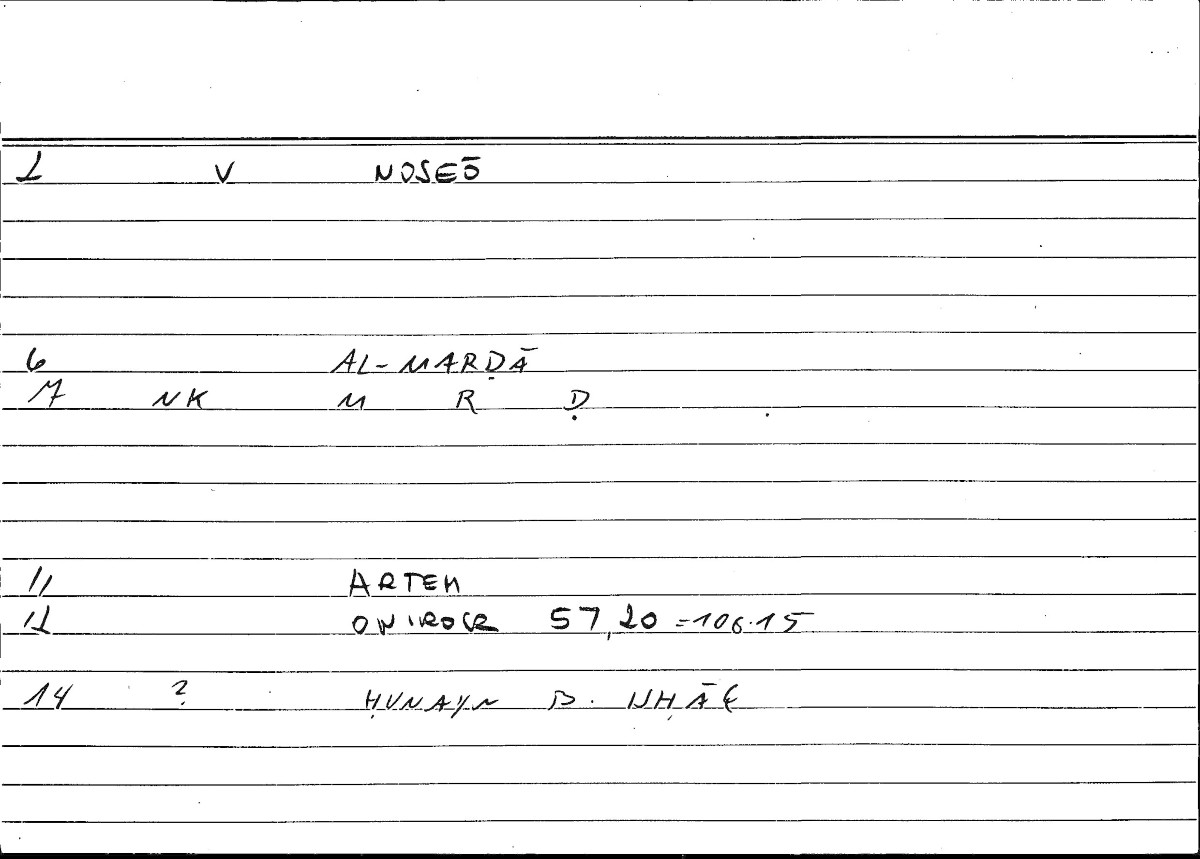 2 V NOSEŌ
6 AL-MARḌĀ
7 NK M R Ḍ
11 ARTEM
12 ONIROCR 57,20 = 106.15
14 ? ḤUNAYN B.